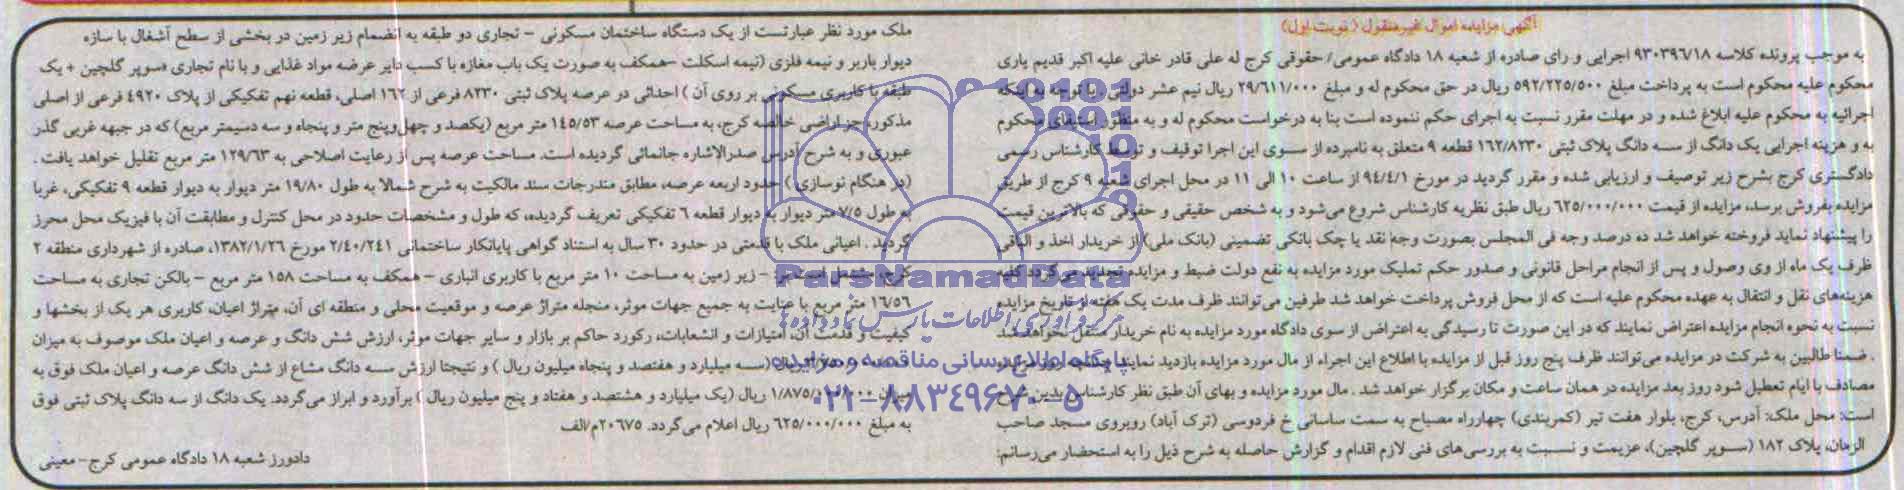 آگهی مزایده اموال غیرمنقول (نوبت اول)
به موجب پرونده کلاسه ۹۳۰۳۹۶/۱۸ اجرایی و رای صادره از شعبه ۱۸ دادگاه عمومی/ حقوقی کرج له علی قادر خانی علیه اکبر قدیم یاری
محکوم علیه محکوم است به پرداخت مبلغ ۵۹۲/۲۲۵/۵۰۰ ریال در حق محکوم له و مبلغ ۲۹/۶۱۱/۰۰۰ ریال نیم عشر دولتی . با توجه به اینکه
اجرائیه به محکوم علیه ابلاغ شده و در مهلت مقرر نسبت به اجرای حکم ننموده است بنا به درخواست محکوم له و به منظور استیفای محکوم
به و هزینه اجرایی یک دانگ از سه دانگ پلاک ثبتی ۱۶۲/۸۲۳۰ قطعه ۹ متعلق به نامبرده از سوی این اجرا توقیف و توسط کارشناس رسمی
دادگستری کرج بشرح زیر توصیف و ارزیابی شده و مقرر گردید در مورخ ۹۴/۴/۱ از ساعت ۱۰ الی ۱۱ در محل اجرای شعبه ۹ کرج از طریق
مزایده بفروش برسد، مزایده از قیمت ۶۲۵/۰۰۰/۰۰۰ ریال طبق نظریه کارشناس شروع می‌شود و به شخص حقیقی و حقوقی که بالاترین قیمت
را پیشنهاد نماید فروخته خواهد شد ده درصد وجه فی المجلس بصورت وجه نقد یا چک بانکی تضمینی (بانک ملی) از خریدار اخذ و الباقی
ظرف یک ماه از وی وصول و پس از انجام مراحل قانونی و صدور حکم تملیک مورد مزایده به نفع دولت ضبط و مزایده تجدید می‌گردد کلیه
هزینه‌های نقل و انتقال به عهده محکوم علیه است که از محل فروش پرداخت خواهد شد طرفین می‌توانند ظرف مدت یک هفته از تاریخ مزایده
نسبت به نحوه انجام مزایده اعتراض نمایند که در این صورت تا رسیدگی به اعتراض از سوی دادگاه مورد مزایده به نام خریدار منتقل نخواهد شد
. ضمنا طالبین به شرکت در مزایده می‌توانند ظرف پنج روز قبل از مزایده با اطلاع این اجراء از مال مورد مزایده بازدید نمایند
مصادف با ایام تعطیل شود روز بعد مزایده در همان ساعت و مکان برگزار خواهد شد . مال مورد مزایده و بهای آن طبق نظر کارشناس بدین شرح
است: محل ملک: آدرس، کرج، بلوار هفت تیر (کمربندی) چهارراه مصباح به سمت ساسانی خ فردوسی (ترک آباد) روبروی مسجد صاحب
الزمان، پلاک ۱۸۲ (سوپر گلچین)، عزیمت و نسبت به بررسی‌های فنی لازم اقدام و گزارش حاصله به شرح ذیل را به استحضار می‌رسانم:
ملک مورد نظر عبارتست از یک دستگاه ساختمان مسکونی - تجاری دو طبقه به انضمام زیر زمین در بخشی از سطح آشغال با سازه
دیوار باربر و نیمه فلزی (نیمه اسکلت -همکف به صورت یک باب مغازه با کسب دایر عرضه مواد غذایی و با نام تجاری «سوپر گلچین + یک
طبقه با کاربری مسکونی بر روی آن ) احداثی در عرصه پلاک ثبتی ۸۲۳۰ فرعی از ۱۶۲ اصلی، قطعه نهم تفکیکی از پلاک ۴۹۲۰ فرعی از اصلی
مذکوره جز اراضی خالصه کرج، به مساحت عرصه ۱۴۵/۵۳ متر مربع (یکصد و چهل‌وپنج متر و پنجاه و سه دسیمتر مربع) که در جبهه غربی گذر
عبوری و به شرح آدرس صدرالاشاره جانمائی گردیده است. مساحت عرصه پس از رعایت اصلاحی به ۱۲۹/۶۳ متر مربع تقلیل خواهد یافت .
(در هنگام نوسازی) حدود اربعه عرصه، مطابق مندرجات سند مالکیت به شرح شمالا به طول ۱۹/۸۰ متر دیوار به دیوار قطعه ۹ تفکیکی، غربا
به طول ۷/۵ متر دیوار به دیوار قطعه ۶ تفکیکی تعریف گردیده، که طول و مشخصات حدود در محل کنترل و مطابقت آن با فیزیک محل محرز
گردید . اعیانی ملک با قدمتی در حدود ۳۰ سال به استناد گواهی پایانکار ساختمانی ۲/۴۰/۲۴۱ مورخ ۱۳۸۲/۱/۲۶، صادره از شهرداری منطقه ۲
کرج، مشتمل است بر: - زیر زمین به مساحت ۱۰ متر مربع با کاربری انباری - همکف به مساحت ۱۵۸ متر مربع - بالکن تجاری به مساحت
۱۶/۵۶ متر مربع با عنایت به جمیع جهات موثره، منجله متراژ عرصه و موقعیت محلی و منطقه ای آن، متراژ اعیان، کاربری هر یک از بخشها و
کیفیت و قدمت آن، امتیازات و انشعابات، رکورد حاکم بر بازار و سایر جهات موثر، ارزش شش دانگ و عرصه و اعیان ملک موصوف به میزان
ریال (سه میلیارد و هفتصد و پنجاه میلیون ریال ) و نتیجتا ارزش سه دانگ مشاع از شش دانگ عرصه و اعیان ملک فوق به
میزان ۱/۸۷۵/۰۰۰/۰۰۰ ریال (یک میلیارد و هشتصد و هفتاد و پنج میلیون ریال ) برآورد و ابراز می‌گردد. یک دانگ از سه دانگ پلاک ثبتی فوق
به مبلغ ۶۲۵/۰۰۰/۰۰۰ ریال اعلام می‌گردد. ۲۰۶۷۵/م/الف
دادورز شعبه ۱۸ دادگاه عمومی کرج- معینی
ParsNamadData
مرکز فرآوری اطلاعات پارس نماد داده ها
پایگاه اطلاع رسانی مناقصه و مزایده
۰۲۱-۸۸۳۴۹۶۷۰-۵